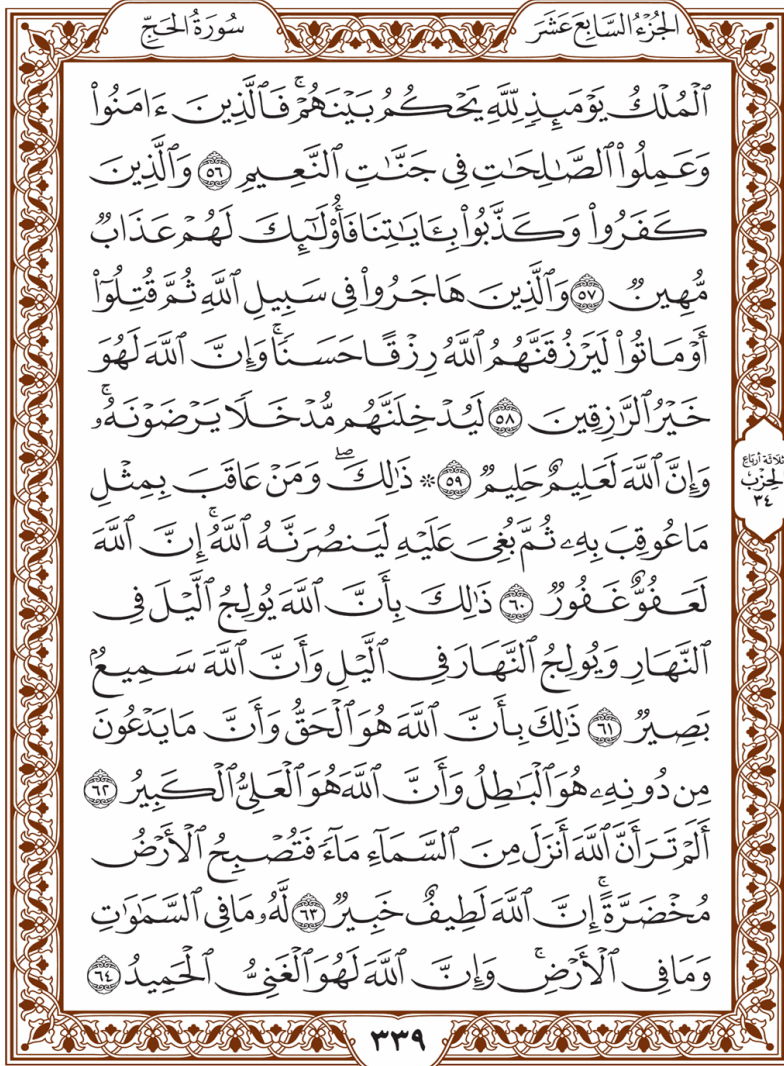 الجُزْءُ السَّابِعَ عَشَرَ
سُورَةُ الحَجِّ
ٱلۡمُلۡكُ يَوۡمَئِذٖ لِّلَّهِ يَحۡكُمُ بَيۡنَهُمۡۚ فَٱلَّذِينَ ءَامَنُواْ
وَعَمِلُواْ ٱلصَّٰلِحَٰتِ فِي جَنَّٰتِ ٱلنَّعِيمِ ٥٦ وَٱلَّذِينَ
كَفَرُواْ وَكَذَّبُواْ بِـَٔايَٰتِنَا فَأُوْلَٰٓئِكَ لَهُمۡ عَذَابٞ
مُّهِينٞ ٥٧ وَٱلَّذِينَ هَاجَرُواْ فِي سَبِيلِ ٱللَّهِ ثُمَّ قُتِلُوٓاْ
أَوۡ مَاتُواْ لَيَرۡزُقَنَّهُمُ ٱللَّهُ رِزۡقًا حَسَنٗاۚ وَإِنَّ ٱللَّهَ لَهُوَ
خَيۡرُ ٱلرَّٰزِقِينَ ٥٨ لَيُدۡخِلَنَّهُم مُّدۡخَلٗا يَرۡضَوۡنَهُۥۚ
وَإِنَّ ٱللَّهَ لَعَلِيمٌ حَلِيمٞ ٥٩ ۞ ذَٰلِكَۖ وَمَنۡ عَاقَبَ بِمِثۡلِ
مَا عُوقِبَ بِهِۦ ثُمَّ بُغِيَ عَلَيۡهِ لَيَنصُرَنَّهُ ٱللَّهُۚ إِنَّ ٱللَّهَ
لَعَفُوٌّ غَفُورٞ ٦٠ ذَٰلِكَ بِأَنَّ ٱللَّهَ يُولِجُ ٱلَّيۡلَ فِي
ٱلنَّهَارِ وَيُولِجُ ٱلنَّهَارَ فِي ٱلَّيۡلِ وَأَنَّ ٱللَّهَ سَمِيعُۢ
بَصِيرٞ ٦١ ذَٰلِكَ بِأَنَّ ٱللَّهَ هُوَ ٱلۡحَقُّ وَأَنَّ مَا يَدۡعُونَ
مِن دُونِهِۦ هُوَ ٱلۡبَٰطِلُ وَأَنَّ ٱللَّهَ هُوَ ٱلۡعَلِيُّ ٱلۡكَبِيرُ ٦٢
أَلَمۡ تَرَ أَنَّ ٱللَّهَ أَنزَلَ مِنَ ٱلسَّمَآءِ مَآءٗ فَتُصۡبِحُ ٱلۡأَرۡضُ
مُخۡضَرَّةًۚ إِنَّ ٱللَّهَ لَطِيفٌ خَبِيرٞ ٦٣ لَّهُۥ مَا فِي ٱلسَّمَٰوَٰتِ
وَمَا فِي ٱلۡأَرۡضِۚ وَإِنَّ ٱللَّهَ لَهُوَ ٱلۡغَنِيُّ ٱلۡحَمِيدُ ٦٤
ثلاثة أرباع
الحِزْب
٣٤
٣٣٩